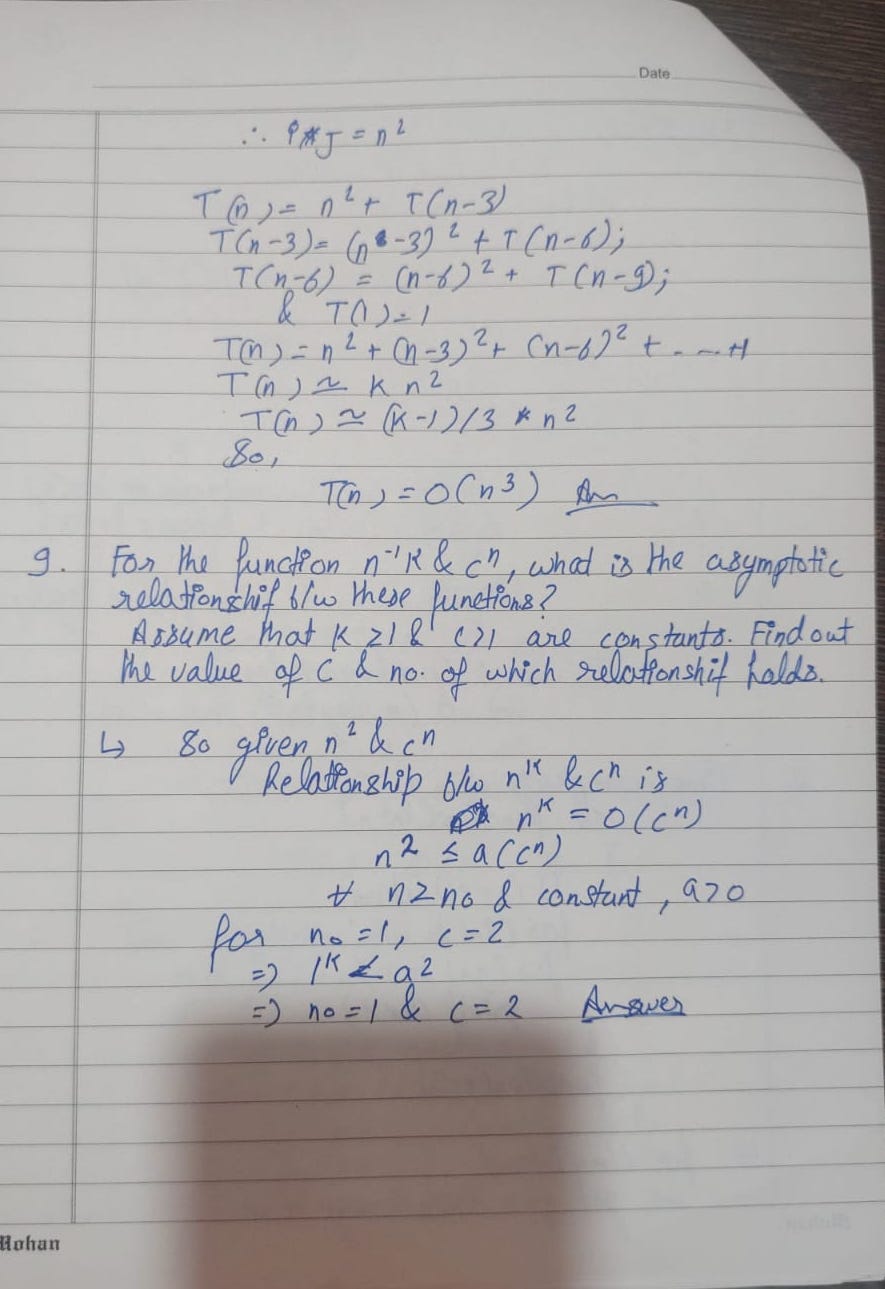 Date
∴ i*J = n²
T(n) = n² + T(n-3)
T(n-3) = (n-3)² + T(n-6);
T(n-6) = (n-6)² + T(n-9);
& T(1) = 1
T(n) = n² + (n-3)² + (n-6)² + - - - +1
T(n) ≃ k n²
T(n) ≃ (k-1)/3 * n²
So,
T(n) = O(n³) Ans
9. For the function n⁻¹K & cⁿ, what is the asymptotic
relationship b/w these functions?
Assume that k ≥1 & c>1 are constants. Find out
the value of C & no. of which relationship holds.
↳ So given n² & cⁿ
Relationship b/w nᴷ & cⁿ is
nᴷ = O(cⁿ)
n² ≤ a(cⁿ)
∀ n≥n₀ & constant, a>0
for n₀ = 1, c = 2
=) 1ᴷ < a2
=) n₀ = 1 & c = 2 Answer
Rohan